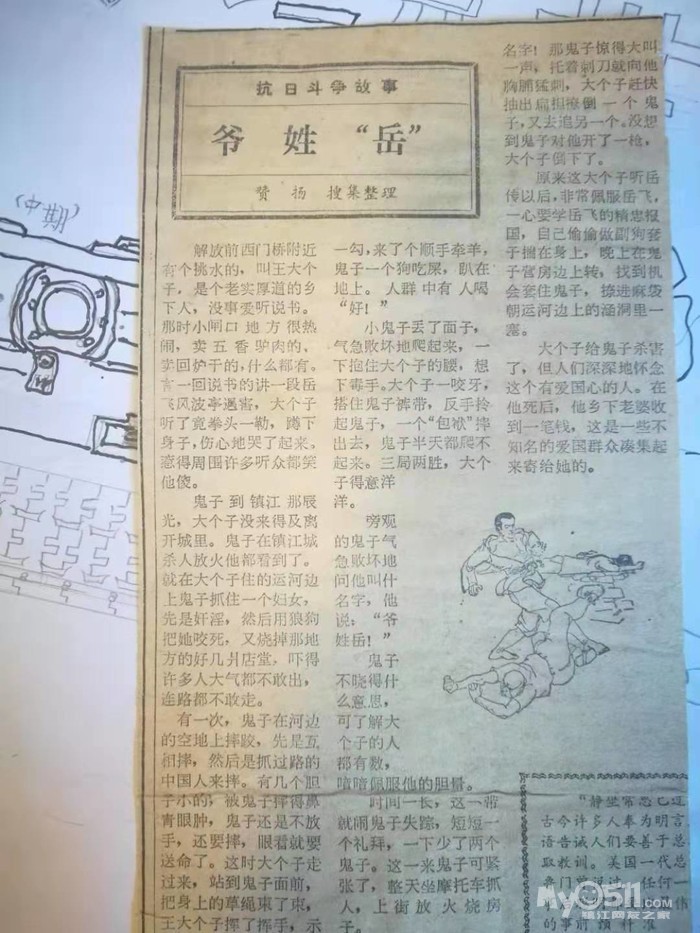 (中期)
抗日斗争故事
爷 姓 “岳”
赞 扬 搜集整理
解放前西门桥附近
有个挑水的，叫王大个
子，是个老实厚道的乡
下人，没事爱听说书。
那时小闸口地方很热
闹，卖五香驴肉的、
卖回炉干的，什么都有。
有一回说书的讲一段岳
飞风波亭遇害，大个子
听了竟拳头一勒，蹲下
身子，伤心地哭了起来。
惹得周围许多听众都笑
他傻。
鬼子到镇江那辰
光，大个子没来得及离
开城里。鬼子在镇江城
杀人放火他都看到了。
就在大个子住的运河边
上鬼子抓住一个妇女，
先是奸淫，然后用狼狗
把她咬死，又烧掉那地
方的好几爿店堂，吓得
许多人大气都不敢出，
连路都不敢走。
有一次，鬼子在河边
的空地上摔跤，先是互
相摔，然后是抓过路的
中国人来摔。有几个胆
子小的，被鬼子摔得鼻
青眼肿，鬼子还是不放
手，还要摔，眼看就要
送命了。这时大个子走
过来，站到鬼子面前，
把身上的草绳束了束，
王大个子挥了挥手，示
一勾，来了个顺手牵羊，
鬼子一个狗吃屎，趴在
地上。人群中有人喝
“好！”
小鬼子丢了面子，
气急败坏地爬起来，一
下抱住大个子的腰，想
下毒手。大个子一咬牙，
搭住鬼子裤带，反手拎
起鬼子，一个“包袱”摔
出去，鬼子半天都爬不
起来。三局两胜，大个
子得意洋
洋。
旁观
的鬼子气
急败坏地
问他叫什
名字，他
说：“爷
姓岳！”
鬼子
不晓得什
么意思，
可了解大
个子的人
都有数，
暗暗佩服他的胆量。
时间一长，这一带
就闹鬼子失踪，短短一
个礼拜，一下少了两个
鬼子。这一来鬼子可紧
张了，整天坐摩托车抓
人，上街放火烧房
子。
名字！那鬼子惊得大叫
一声，托着刺刀就向他
胸脯猛刺，大个子赶快
抽出扁担撩倒一个鬼
子，又去追另一个。没想
到鬼子对他开了一枪，
大个子倒下了。
原来这大个子听岳
传以后，非常佩服岳飞，
一心要学岳飞的精忠报
国，自己偷偷做副狗套
子揣在身上，晚上在鬼
子营房边上转，找到机
会套住鬼子，捺进麻袋
朝运河边上的涵洞里一
塞。
大个子给鬼子杀害
了，但人们深深地怀念
这个有爱国心的人。在
他死后，他乡下老婆收
到一笔钱，这是一些不
知名的爱国群众凑集起
来寄给她的。
“静坐常思己过
古今许多人奉为明言
语告诫人们要善于总
取教训。美国一代总
任何一
的事前预料准
My0511.com
镇江网友之家